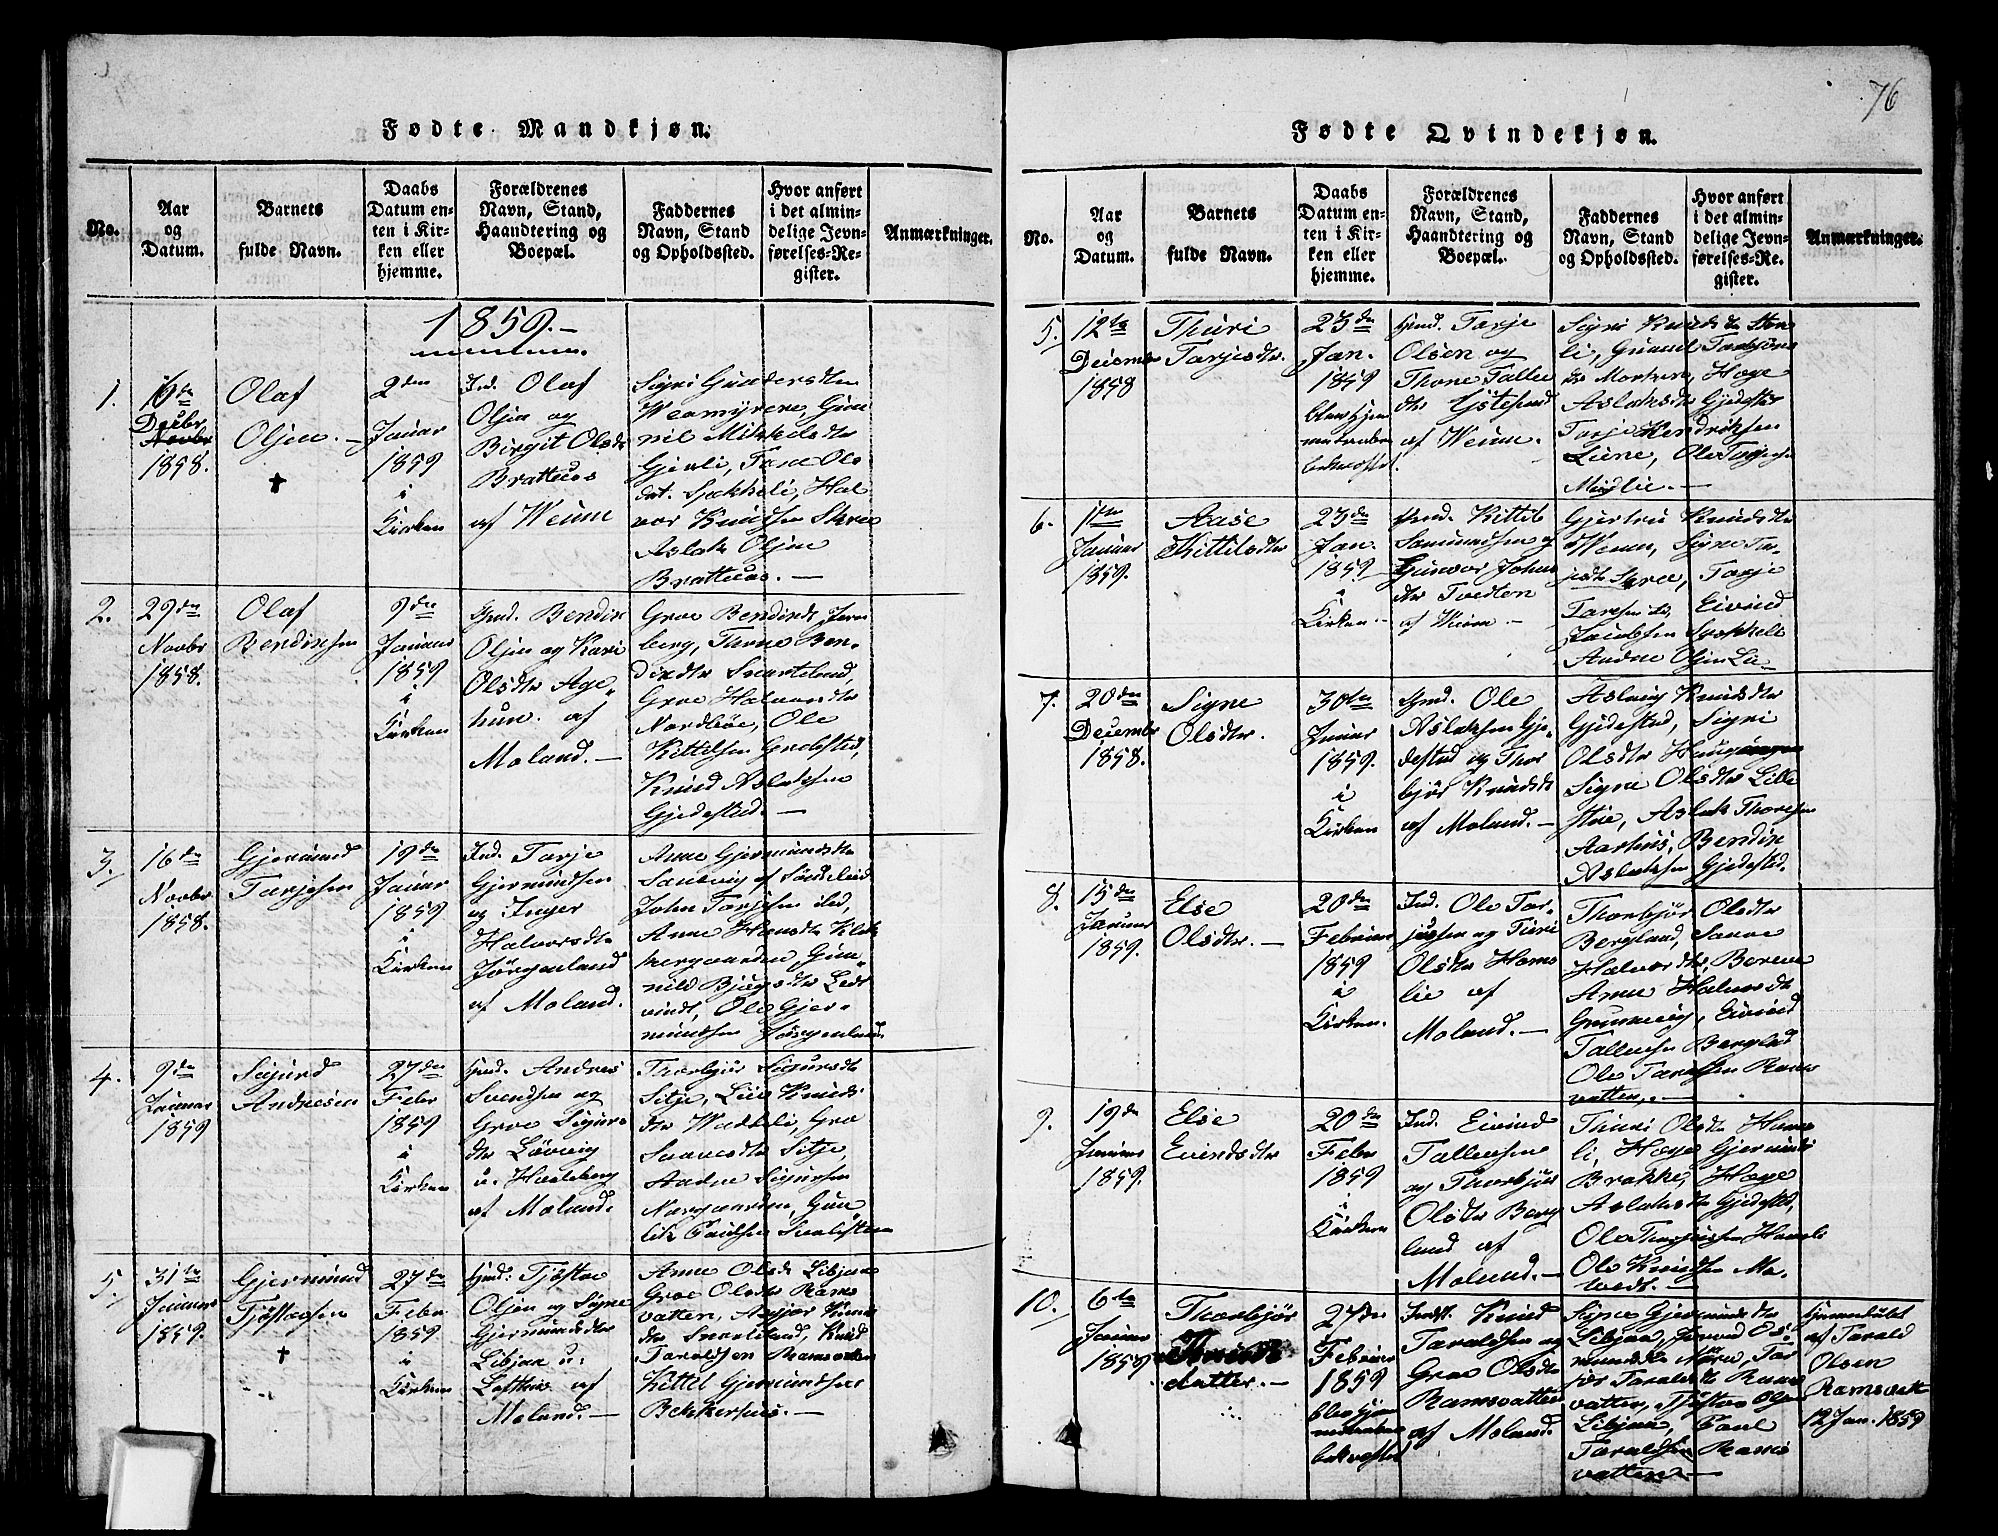 76
Fødte Mandkjøn.
No.
Aar
og
Datum.
Barnets
fulde Navn.
Daabs
Datum en-
ten i Kir-
ken eller
hjemme.
Forældrenes
Navn, Stand,
Haandtering og
Boepæl.
Faddernes
Navn, Stand
og Opholdssted.
Hvor anført
i det almin-
delige Jevn-
førelses-Re-
gister.
Anmærkninger.
1859.-
1.
16de
Decbr
1858.
Olaf
Olsen.-
2den
Januar
1859
i
Kirken
Ind. Olaf
Olsen og
Birgit Olsdtr
Brattuus
af Weum
Sigri Gundersdtr
Weamyrene, Gun
nil Mikkelsdtr
Hal
vor Knudsen
Aslak Olsen
Brattuus.-
2.
29de
Novbr
1858.
Olaf
Bendixsen
9de
Januar
1859
i
Kirken
Gmd. Bendix
Olsen og Kari
Olsdtr Age-
hun. af
Moland.-
Groe Bendixdt. Jorn
berg, Thone Ben-
dixdtr Svartelund,
Groe Halvorsdtr
Nordbøe, Ole
Kittilsen
Knud Aslaksen
Gjedestad.-
3.
16de
Novbr
1858.
Gjermund
Tarjesen
19de
Januar
1859
i
Kirken
Ind. Tarje
Gjermundsen
og Inger
Halvorsdtr
Jørgenlund
af Moland.
Anne Gjermundsdtr
Sandvig af Søndeled
John Tarjesen ibd,
Anne Hansdtr Klok
kergaarden, Gun-
nild
vindt, Ole Gjer-
mundsen Jørgenlund.
4.
9de
Januar
1859
Sigurd
Andresen
27de
Febr
1859
i
Kirken
Gmd. Andres
Svendsen og
Groe Sigurs-
dtr Løvvig
af Moland.
Thorbjør Sigursdt
Sitje, Liv Knuds
dtr Groe
Sitje,
Sigursen
Norgaarden, Gun
5.
31te
Januar
1859.
Gjermund
Tjøstolsen
27de
Febr.
1859
i
Kirken
Gmd: Tjøstov
Olsen og Signe
Gjermundsdtr
Libjaa u:
Lofthus af
Moland.-
Anne Olsdt Libjaa
Groe Olsdtr Rams
vatten, Asgjør Knuds
dtr Svartelund, Knud
Taraldsen Ramsvatten
Kittel Gjermundsen
Bekkerhus.-
Fødte Qvindekjøn.
No.
Aar
og
Datum.
Barnets
fulde Navn.
Daabs
Datum en-
ten i Kir-
ken eller
hjemme.
Forældrenes
Navn, Stand,
Haandtering og
Boepæl.
Faddernes
Navn, Stand
og Opholdssted.
Hvor anført
i det almin-
delige Jevn-
førelses-Re-
gister.
Anmærkninger.
5.
12te
Decmbr
1858
Thuri
Tarjesdtr
23de
Jan.
1859
blev hjem
medaaben
bekræftet.
Gmd. Tarje
Olsen og
Thone Talle
dtr Ystesund
af Weum.
Sigri Knudsdtr
li, Gunild Torbjørns
dtr Hæge
Aslaksdtr Gjedestad
Tarje Hendriksen
Liene, Ole Tarjesen
Midlie.-
6.
11te
Januar
1859.
Aase
Kittilsdtr
23de
Jan.
1859
i
Kirken.-
Gmd. Kittil
Sammundsen og
Gunvor Johns
dtr Tvedten
af Weum.-
Gjertru Knudsdtr
Weum, Signe Tar-
jesdtr Tarje
Taresen Eivind
Jacobsen
Andne Olsen Lie.-
7.
20de
Decembr
1858.
Signe
Olsdtr.
30te
Januar
1859.
i
Kirken
Gmd. Ole
Aslaksen Gje-
destad og Thor
bjør Knudsdtr
af Moland.-
Aslaug Knudsdtr
Gjedestad, Sigri
Olsdtr
Signe Olsdtr Lille
stue, Aslak Thoresen
Aarhus, Bendix
Aslaksen Gjedestad.
8.
15de
Januar
1859.
Else
Olsdtr.-
20de
Februar
1859
i
Kirken.
Ind. Ole Tar-
jusen og Turi
Olsdtr Hams
lie af
Moland.-
Thorbjør Olsdtr
Bergland,
Halvorsdtr,
Anne Halvorsdtr
Eivind
Tallevsen Bergland
Ole Rams
vatten.-
9.
19de
Januar
1859.
Else
Evindsdtr
20de
Febr
1859
i
Kirken
Ind. Eivind
Tallevsen
og Thorbjør
Olsdtr Berg
lund af
Moland.-
Thuri Olsdtr Hams
li, Hæge
Brakke, Hæge
Aslaksdtr Gjedestad,
Ole Hamsli
Ole Knudsen
10.
6te
Januar
1859
Thorbjør
Knuds
datter.-
27de
Februar
1859
blev hjem
medaaben
bekræftet
Indt. Knud
Taraldsen og
Groe Olsdtr
Ramsvatten
af Moland.
Signe Gjermundsdtr
Libjaa,
Tor
bjør Taraldsdtr Rams
vatten, Tjøstov Olsen
Libjaa, Paul
Taraldsen Rams
vatten.-
Hjemmedøbt
af Tarald
Olsen
Ramsvatt
12 Jan. 1859